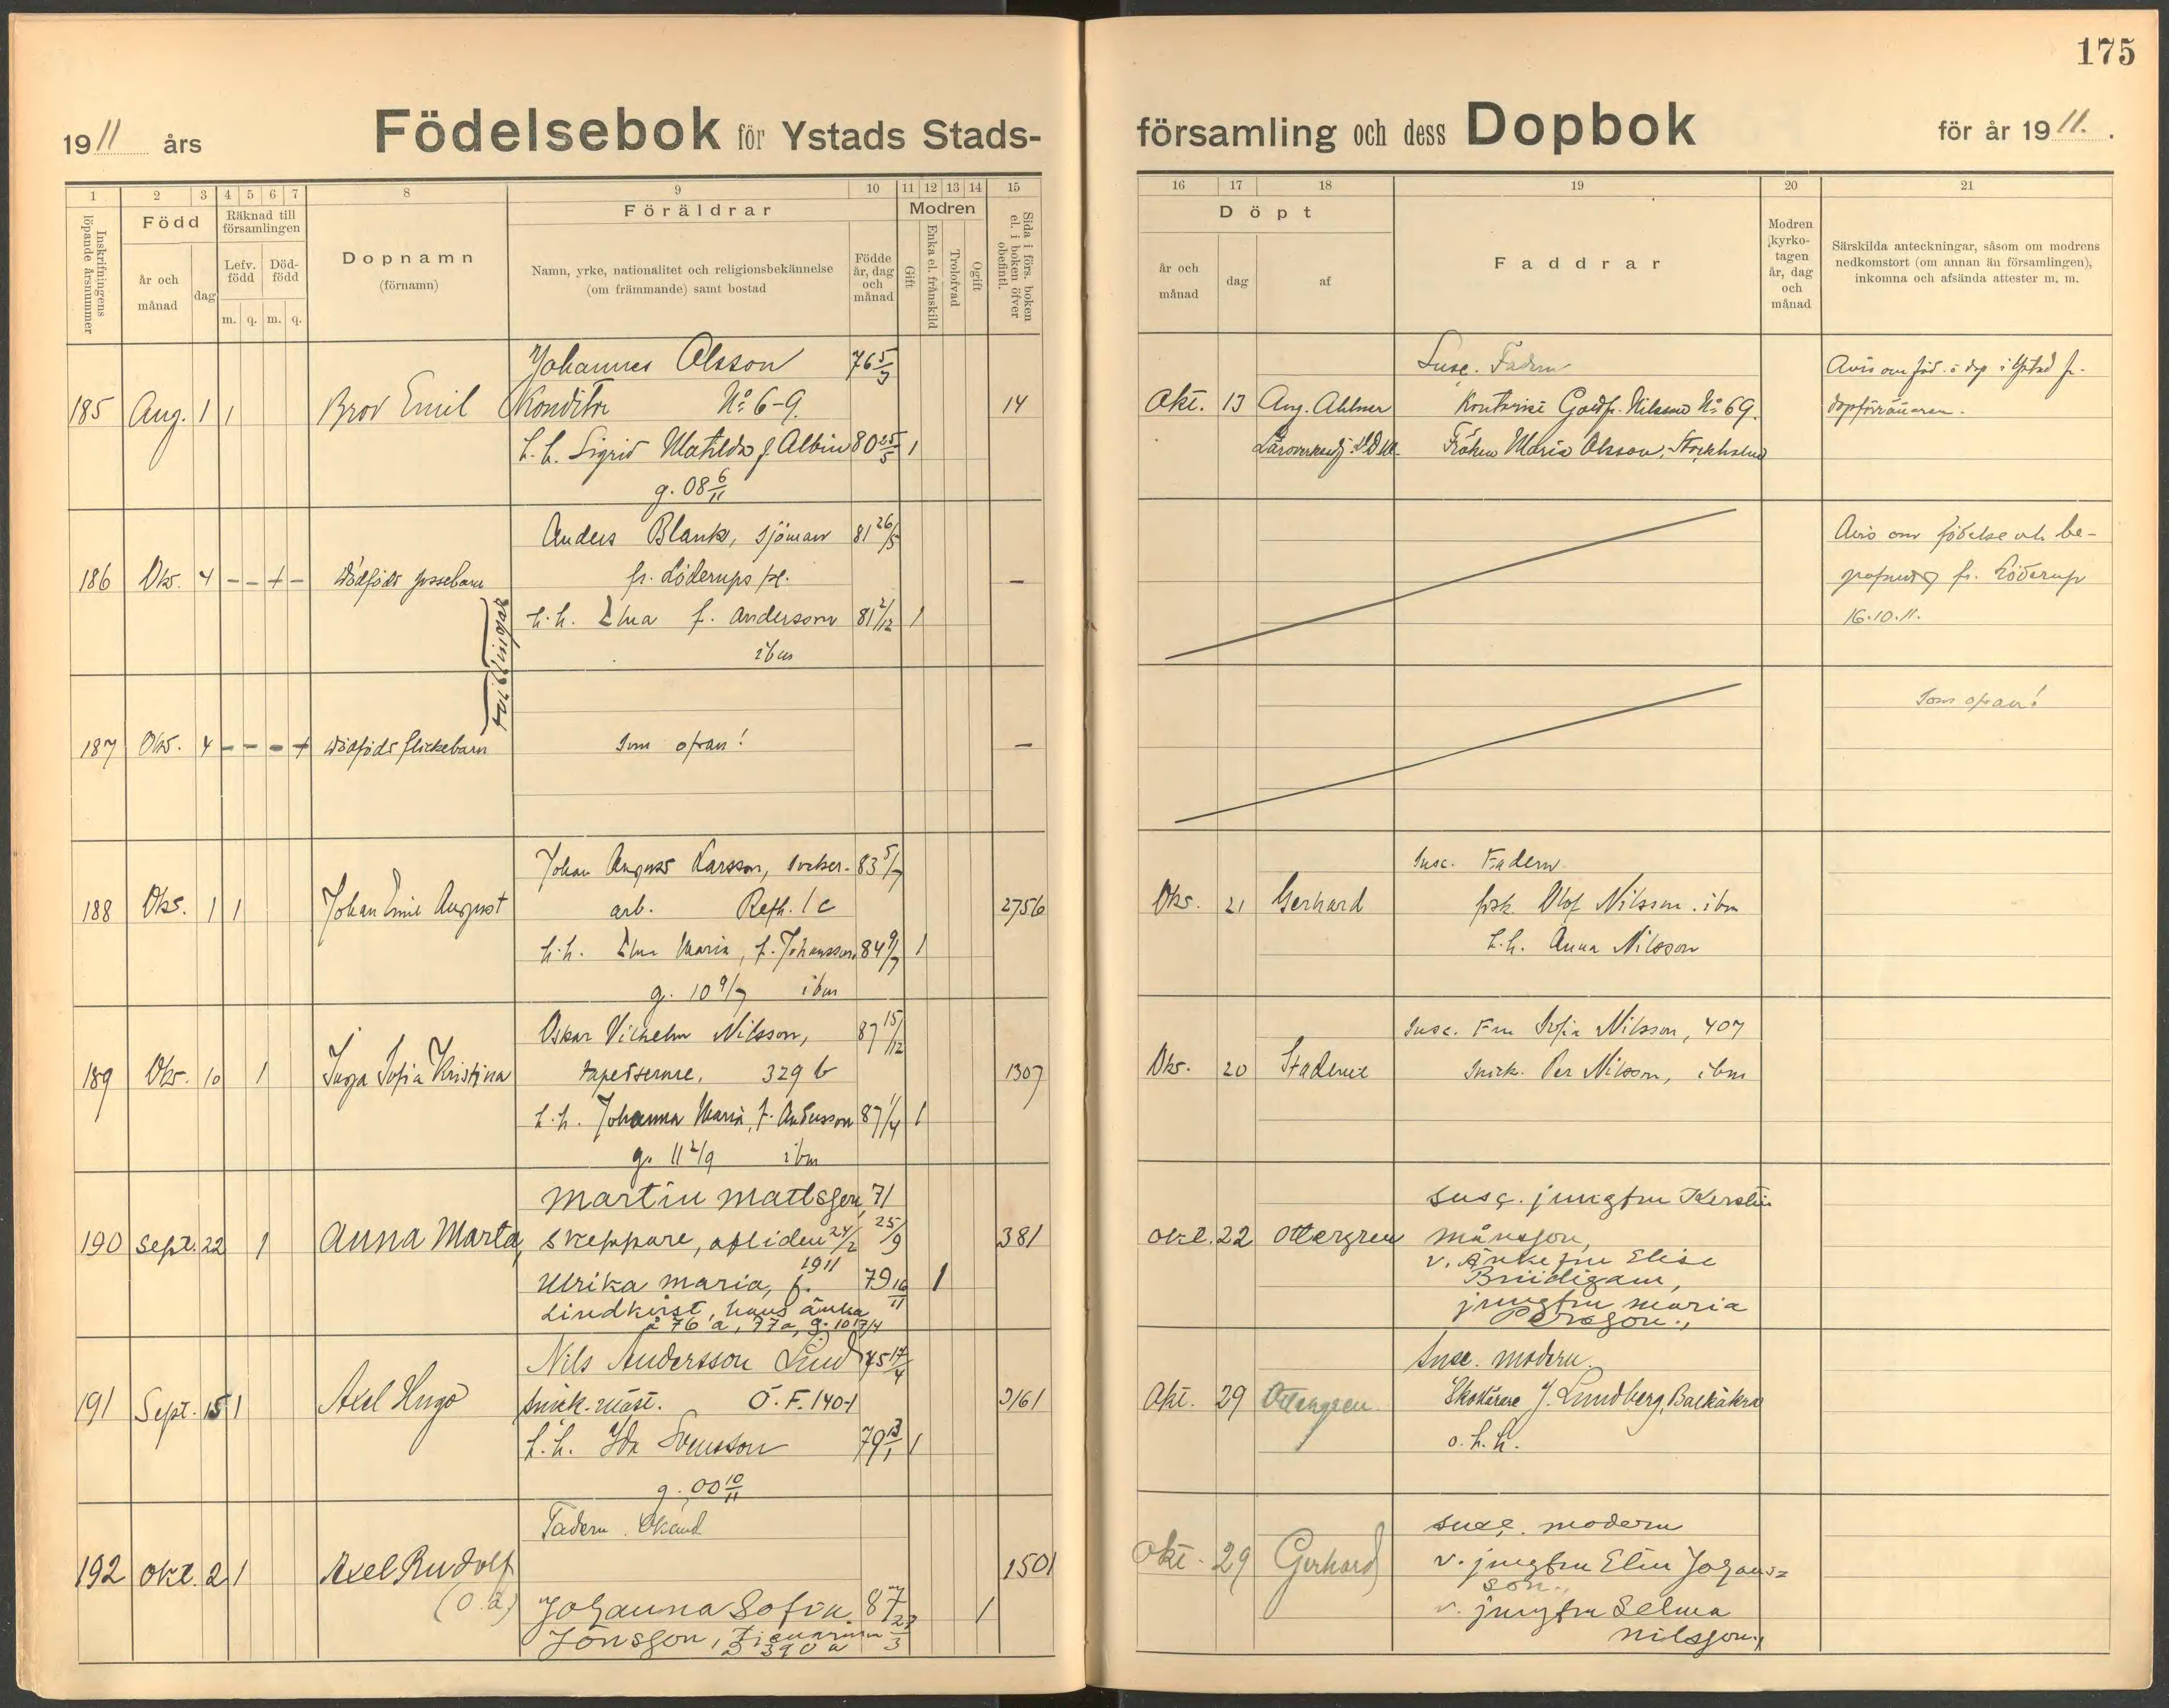 175
1911 års Födelsebok för Ystads Stads-
församling och dess Dopbok för år 1911.
1 2 3 4 5 6 7 8 9 10 11 12 13 14 15
Inskrifningens löpande årsnummer
Född
år och månad
dag
Räknad till församlingen
Lefv. född
Död-född
m. q. m. q.
Dopnamn
(förnamn)
Föräldrar
Namn, yrke, nationalitet och religionsbekännelse
(om främmande) samt bostad
Födde år, dag och månad
Modren
Gift
Enka el. frånskild
Trolofvad
Ogift
Sida i förs. boken el. i boken öfver obefintl.
16 17 18 19 20 21
Döpt
år och månad
dag
af
Faddrar
Modren kyrko-tagen år, dag och månad
Särskilda anteckningar, såsom om modrens
nedkomstort (om annan än församlingen),
inkomna och afsända attester m. m.
Johannes Olsson 76 5/9
185 Aug. 1 1 Bror Emil Konditor No 6-9. 14
h. h. Sigrid Matilda f. Albin 80 25/5 1
g. 08 6/11
Susc. Fadern
Okt. 13 Aug. Ahlmer
Fröken Maria Olsson, Stockholm
Anders Blank, sjöman 81 26/5
186 Okt. 4 - - + - dödfödt gossebarn fr. Löderups fs. -
h. h. Elna f. Andersson 81 2/12 1
ibm
tvillingar
Avis om födelse och be-
grafning fr. Löderup
16.10.11.
187 Okt. 4 - - - + dödfödt flickebarn Som ofvan! -
Som ofvan!
Johan August Larsson, socker- 83 5/7
188 Okt. 1 1 Johan Emil August arb. Reth. 1 c 2756
h. h. Elna Maria, f. Johansson 84 9/7 1
g. 10 9/7 ibm
Susc. Fadern
Okt. 21 Gerhard fisk. Olof Nilsson. ibm
h. h. Anna Nilsson
Oskar Vilhelm Nilsson, 87 15/12
189 Okt. 10 1 Inga Sofia Kristina tapetserare, 329 b 1307
h. h. Johanna Maria, f. Andersson 87 1/4 1
g. 11 2/9 ibm
Susc. Fru Sofia Nilsson, 407
Okt. 20 Stadener Snick. Per Nilsson, ibm
Martin Mattsson, 71
190 Sept. 22 1 Anna Marta, skeppare, afliden 24/2 25/9 381
1911
Ulrika Maria, f. 79 16/11 1
Lindkvist, hans änka
å 76 a, 77 a, g. 10 17/4
susc. jungfru Kerstin
Okt. 22 Ottergren Månsson,
v. Änkefru Elise
Brüdigam,
jungfru Maria
Persson.,
Nils Andersson Lind 75 17/4
191 Sept. 15 1 Axel Hugo snick. mäst. Ö. F. 140-1 2161
h. h. Ida Svensson 79 13/1 1
g. 00 10/11
Susc. modern.
Okt. 29 Ottergren Skolärare J. Lundberg, Balkåkra
o. h. h.
Fadern Okänd
192 Okt. 2 1 Axel Rudolf 1501
(o. ä.) Johanna Sofia 87 27/3 1
Jönsson, tjenarinna
å 390 a
susc. modern
Okt. 29 Gerhard v. jungfru Elin Johans=
son.,
v. jungfru Selma
Nilsson.,